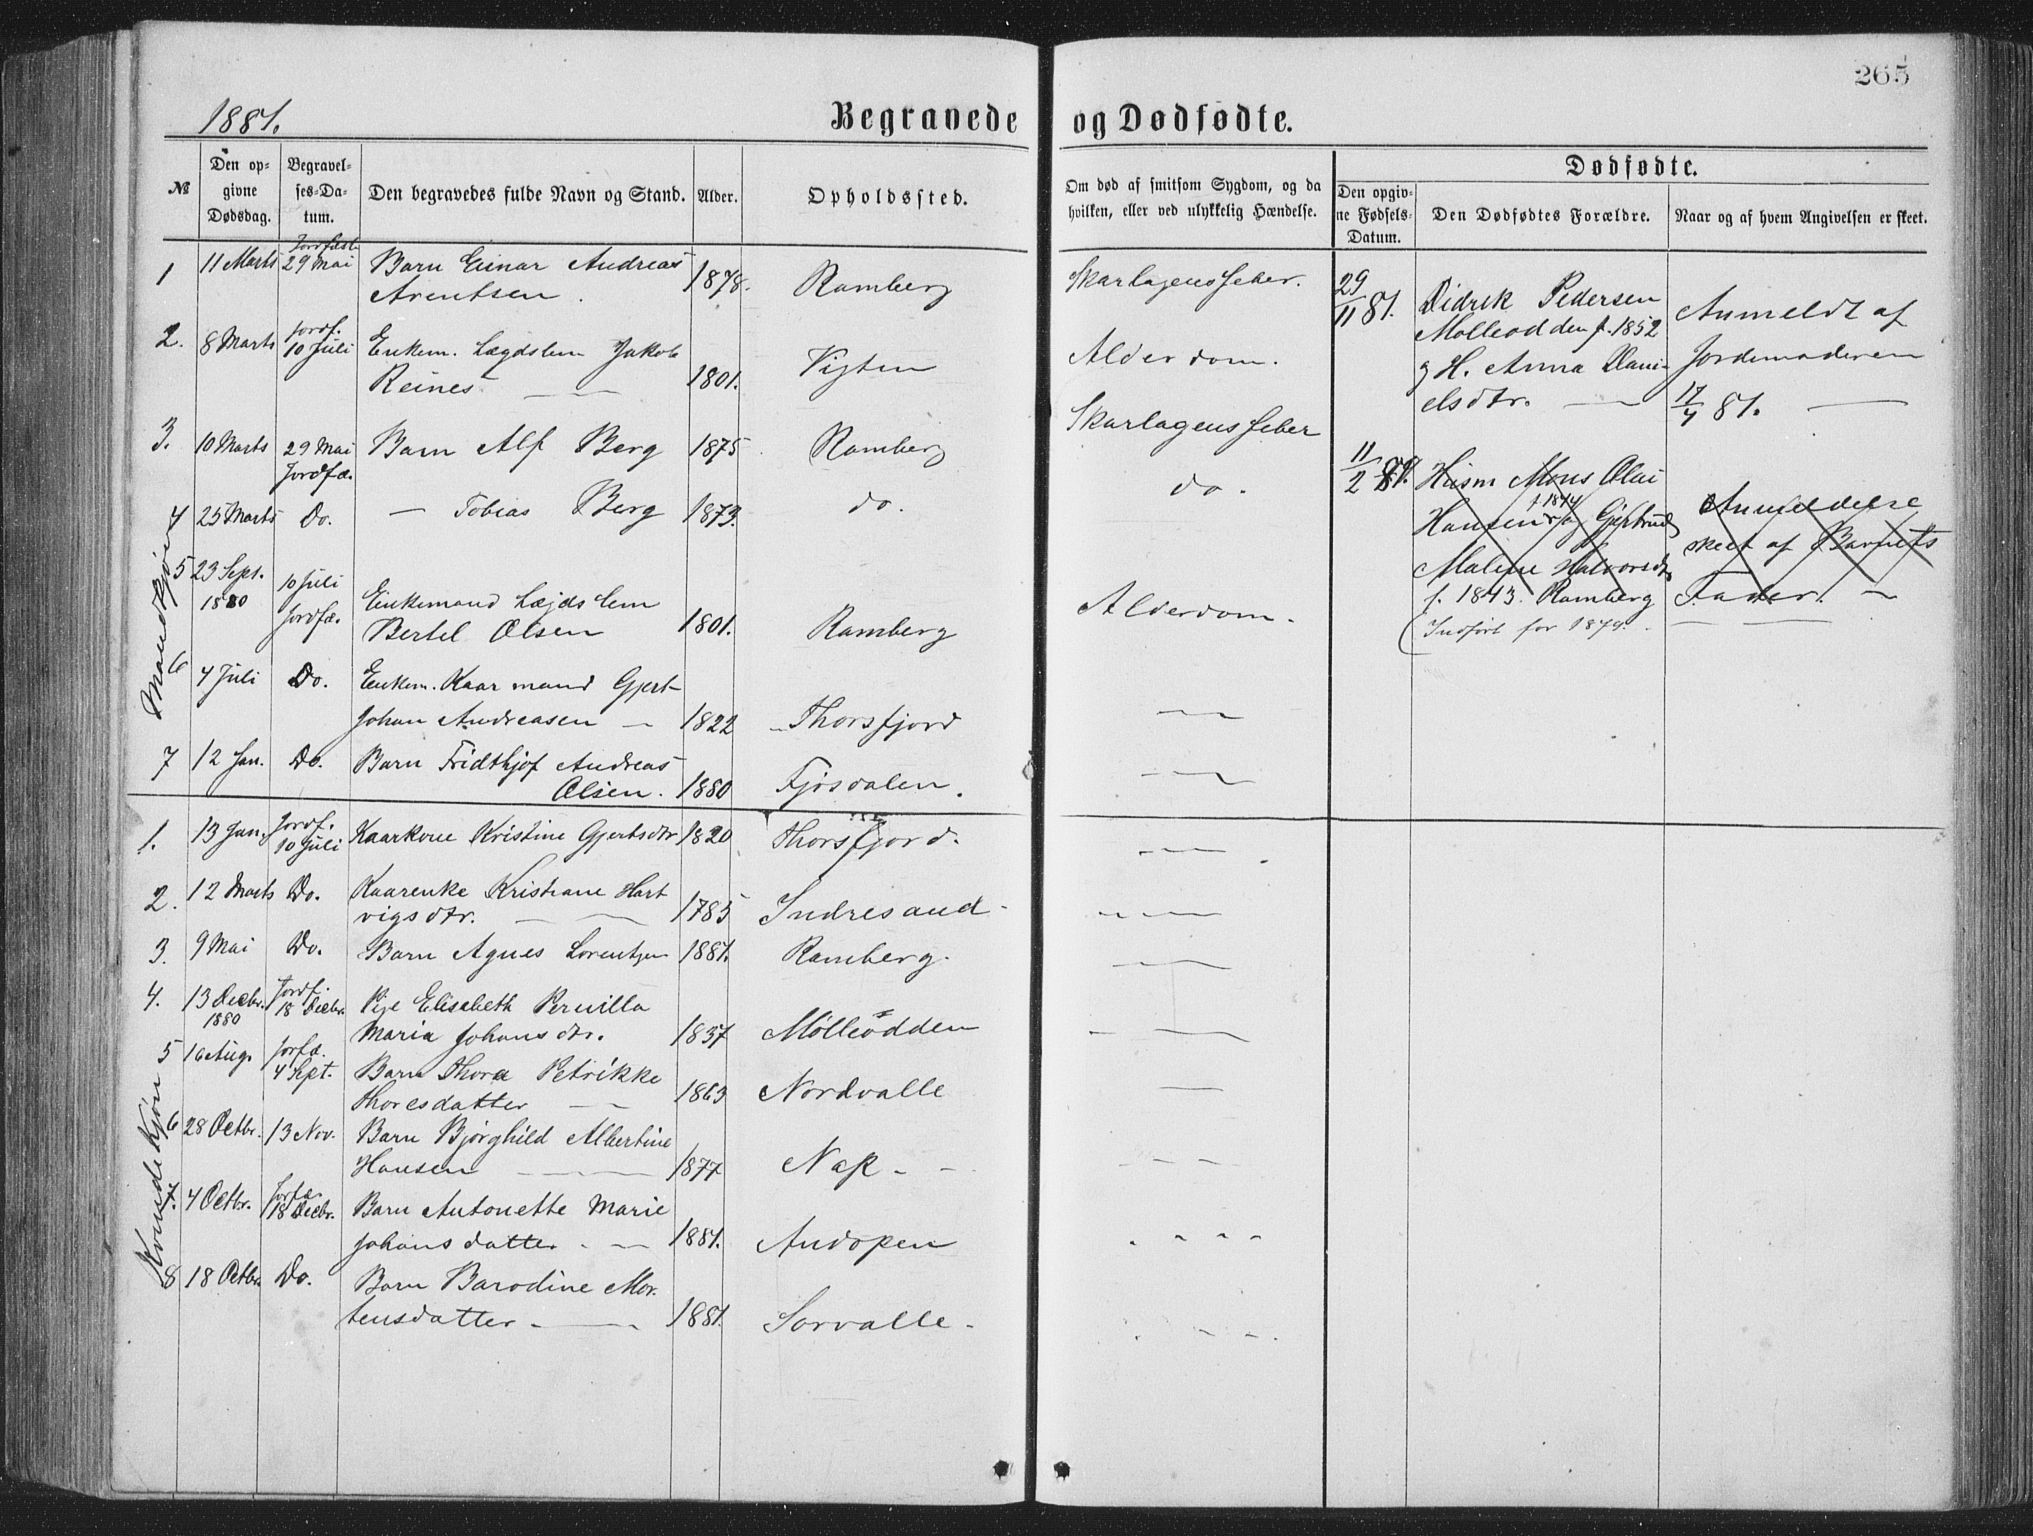 265
1881.
Begravede og Dødfødte.
№
Den op-
givne
Dødsdag.
Begravel-
ses-Da-
tum.
Den begravedes fulde Navn og Stand.
Alder.
Opholdssted.
Om død af smitsom Sygdom, og da
hvilken, eller ved ulykkelig Hændelse.
Dødfødte.
Den opgiv-
ne Fødsels-
Datum.
Den Dødfødtes Forældre.
Naar og af hvem Angivelsen er skeet.
Mandkjøn
1 11 Marts Jordfæst. 29 Mai Barn Einar Andreas
Arentsen. 1878. Ramberg Skarlagensfeber.
2. 8 Marts Jordf. 10 Juli Enkem. Lægdslem Jakob
Reines 1801. Vigten Alderdom.
3. 10 Marts 29 Mai Jordfæ. Barn Alf Berg 1875 Ramberg Skarlagensfeber
4 25 Marts Do. — Tobias Berg 1873. do. do.
5 23 Sept. 1880 10 Juli Jordfæ. Enkemand Lægdslem
Bertel Olsen 1801. Ramberg Alderdom.
6 4 Juli Do. Enkem. Kaarmand Gjert
Johan Andreasen — 1822 Thorsfjord — —
7 12 Jan. Do. Barn Fridthjof Andreas
Olsen. 1880 Fjøsdalen. — —
Kvindekjøn
1. 13 Jan. Jordf. 10 Juli Kaarkone Kristine Gjertsdtr 1820 Thorsfjord. — — —
2. 12 Marts Do. Kaarenke Kristiane Hart
vigsdtr. — — 1785 Indresand — — —
3. 9 Mai Do. Barn Agnes Lorentzen 1881. Ramberg. — — —
4. 13 Decbr. 1880 Jordf. 18 Decbr. Pige Elisabeth Pernilla
Maria Johansdtr. 1837 Mølleodden — — —
5 16 Aug. Jorfæ. 4 Sept. Barn Thora Petrikke
Thoresdatter — — 1863 Nordvalle —
6 28 Octbr. 13 Nov. Barn Bjørghild Albertine
Hansen — 1877 Nap — — — —
7. 4 Octbr. Jorfæ. 18 Decbr. Barn Antonette Marie
Johansdatter — 1881. Andopen - - - -
8 18 Octbr. Do. Barn Barodine Mor-
tensdatter — — 1881. Sørvalle - - - -
29/11 81. Didrik Pedersen
Mølleodden f. 1852
g H. Anna Dani-
elsdtr. —
Anmeldt af
Jordemoderen
17/4 81. —
11/2 Husm Mons Olai
Hansen f. 1844 og Gjertrud
Maline Halvorsdtr
f. 1843. Ramberg
(Indført for 1879.
Anmeldelse
skeet af Barnets
Fader. —